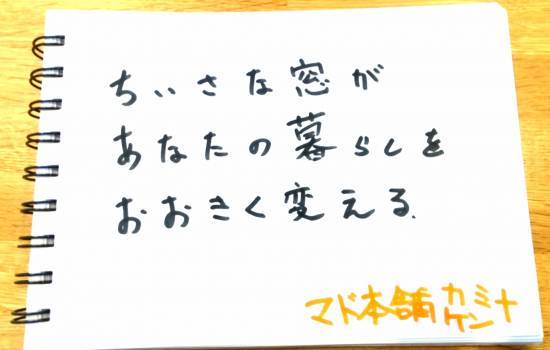 ちいさな窓が
あなたの暮らしを
おおきく変える.
マド本舗 カミナ
ケン